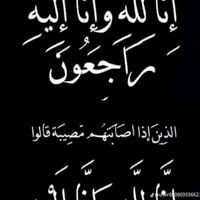 إِنَّا لِلَّهِ وَإِنَّا إِلَيْهِ
رَاجِعُونَ
الذين إذا اصابتهم مصيبة قالوا